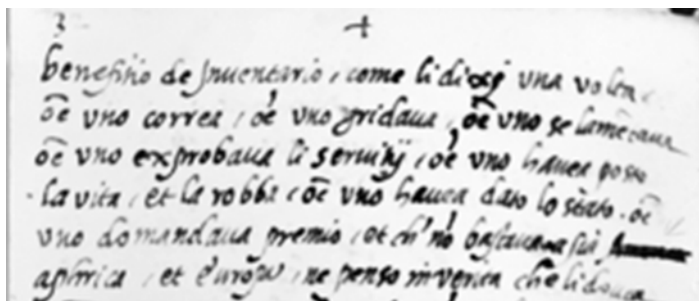 3
benefitio de Inventario, come li dixi una volta
oẽ uno correa, oẽ uno gridava, oẽ uno se lamẽtava
oẽ uno exprobava li servitij, oẽ uno havea posto
la vita, et la robba, oẽ uno havea dato lo stato. oẽ
uno domandava premio, et ch' nõ bastava asia
aphrica, et europa, ne penso in verita che li dovea